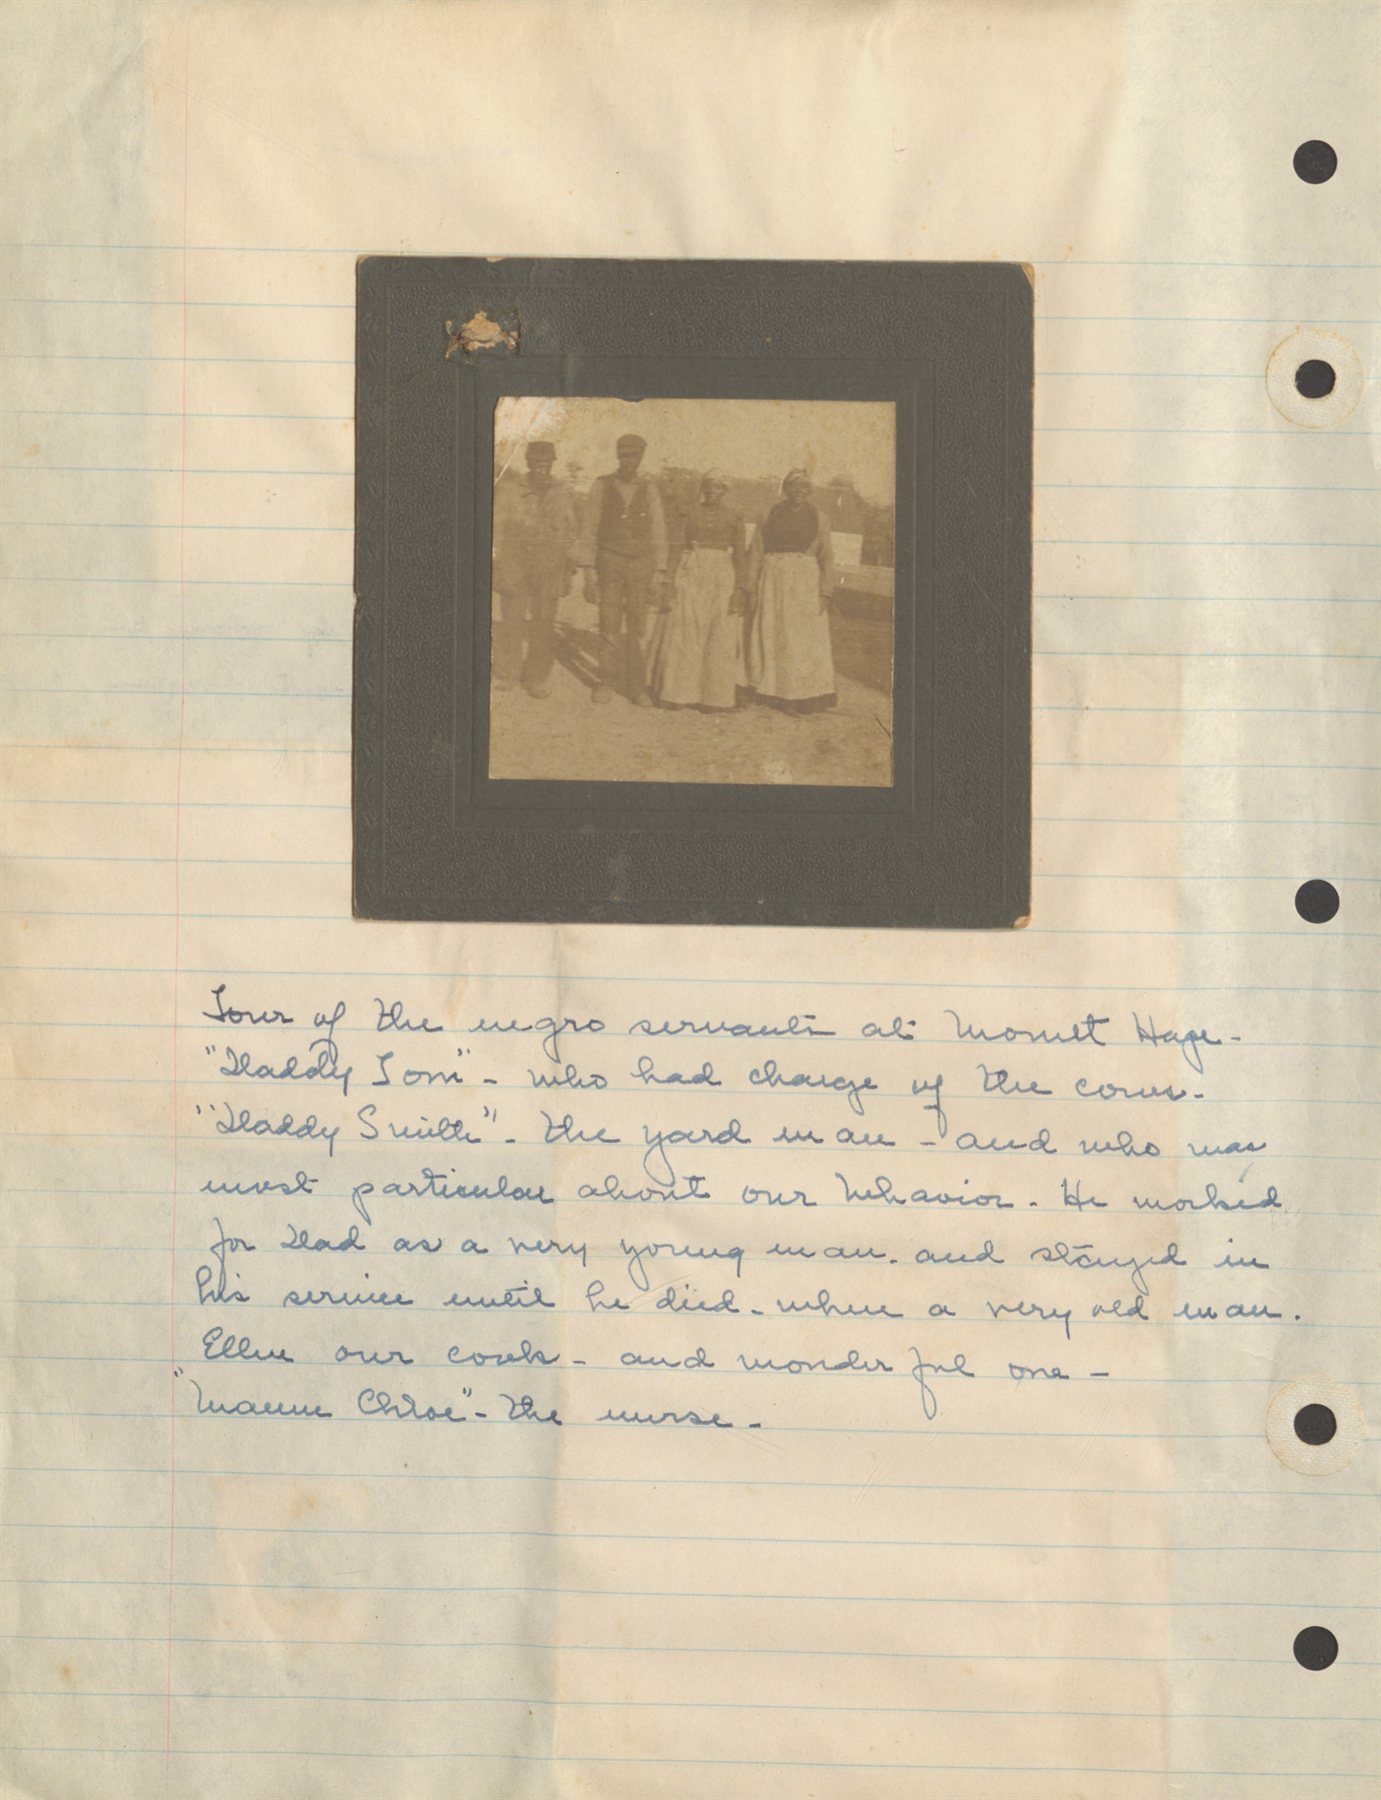 Four of the negro servants at Mount Hope -
"Daddy Tom" - who had charge of the cows.
"Daddy Smith" - the yard man - and who was
most particular about our behavior. He worked
for Dad as a very young man. and stayed in
his service until he died - when a very old man.
Ellen our cook - and wonderful one -
"Maum Chloe" - the nurse -